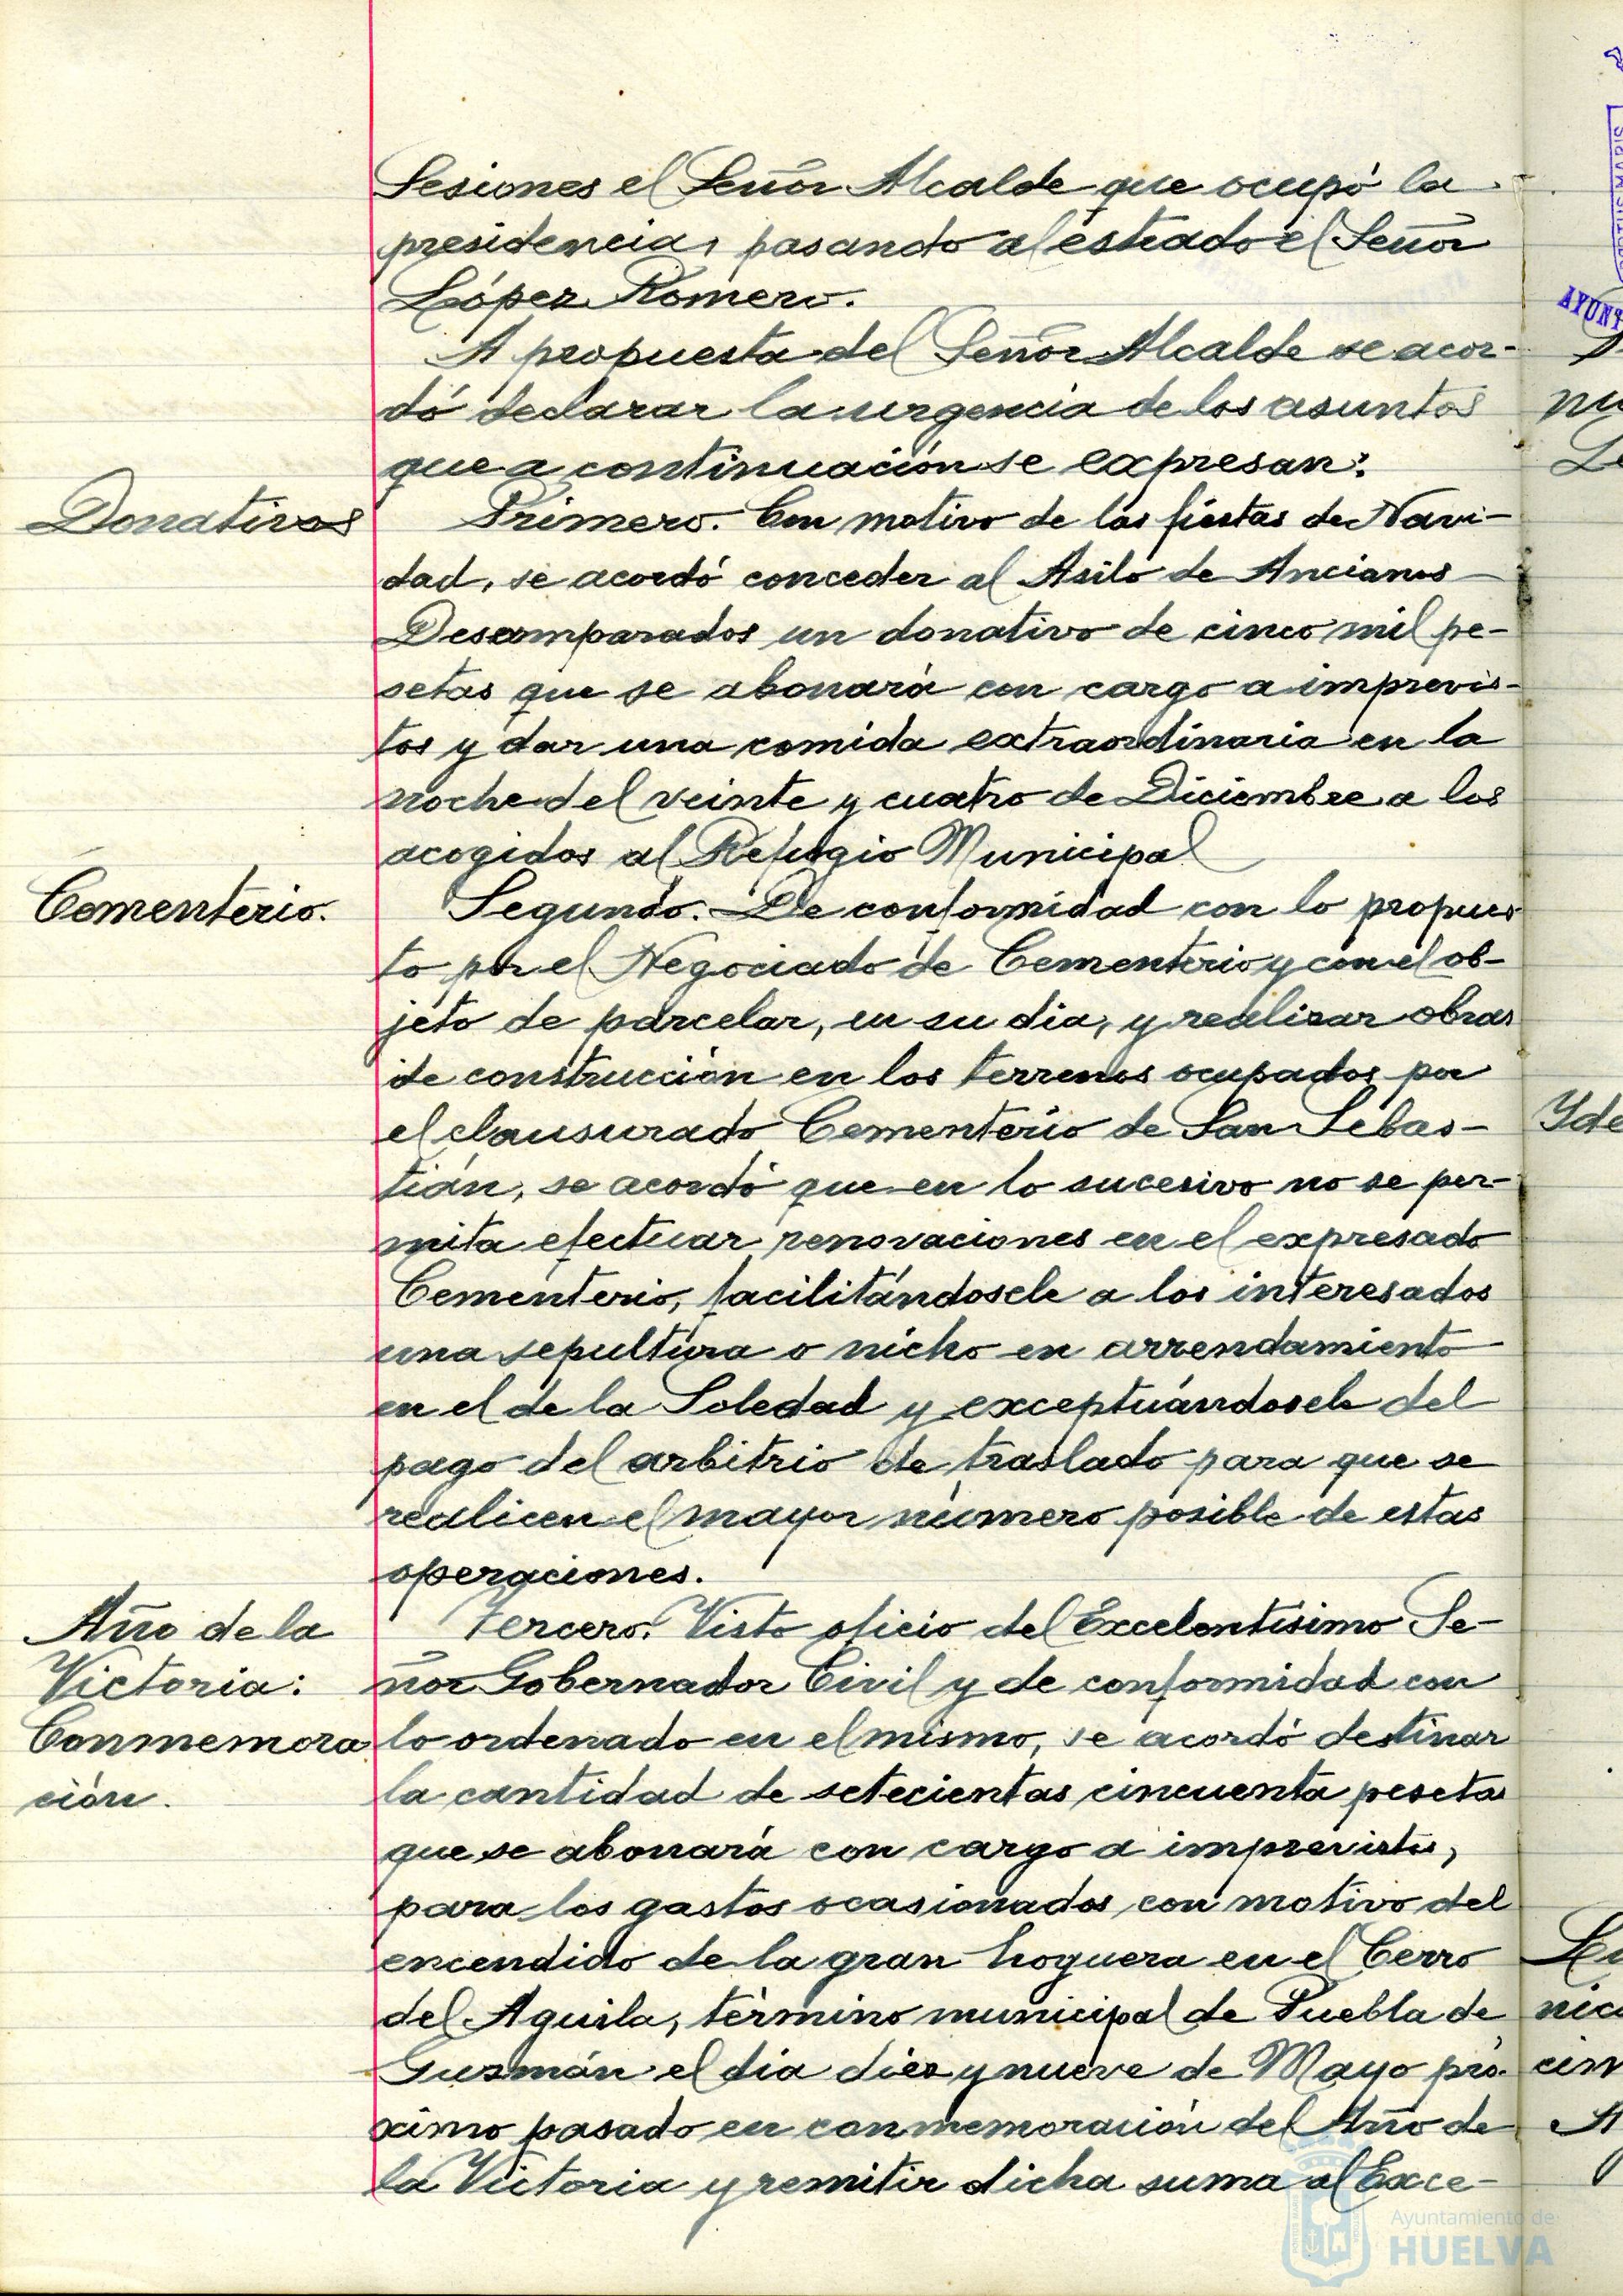 Sesiones el Señor Alcalde que ocupó la
presidencia, pasando al estrado el Señor
López Romero.
A propuesta del Señor Alcalde se acor-
dó declarar la urgencia de los asuntos
que a continuación se expresan:
Donativos
Primero. Con motivo de las fiestas de Navi-
dad, se acordó conceder al Asilo de Ancianos
Desamparados un donativo de cinco mil pe-
setas que se abonará con cargo a imprevis-
tos y dar una comida extraordinaria en la
noche del veinte y cuatro de Diciembre a los
acogidos al Refugio Municipal
Cementerio.
Segundo. De conformidad con lo propues
to por el Negociado de Cementerio y con el ob-
jeto de parcelar, en su dia, y realizar obras
de construcción en los terrenos ocupados por
el clausurado Cementerio de San Sebas-
tián, se acordó que en lo sucesivo no se per-
mita efectuar renovaciones en el expresado
Cementerio, facilitándosele a los interesados
una sepultura o nicho en arrendamiento
en el de la Soledad y exceptuándosele del
pago del arbitrio de traslado para que se
realicen el mayor número posible de estas
operaciones.
Año de la
Victoria:
Conmemora
ción.
Tercero. Visto oficio del Excelentísimo Se-
ñor Gobernador Civil y de conformidad con
lo ordenado en el mismo, se acordó destinar
la cantidad de setecientas cincuenta pesetas
que se abonará con cargo a imprevistos,
para los gastos ocasionados con motivo del
encendido de la gran hoguera en el Cerro
del Aguila, término municipal de Puebla de
Guzmán el dia diez y nueve de Mayo pró-
ximo pasado en conmemoración del Año de
la Victoria y remitir dicha suma al Exce-
Ayuntamiento de
HUELVA